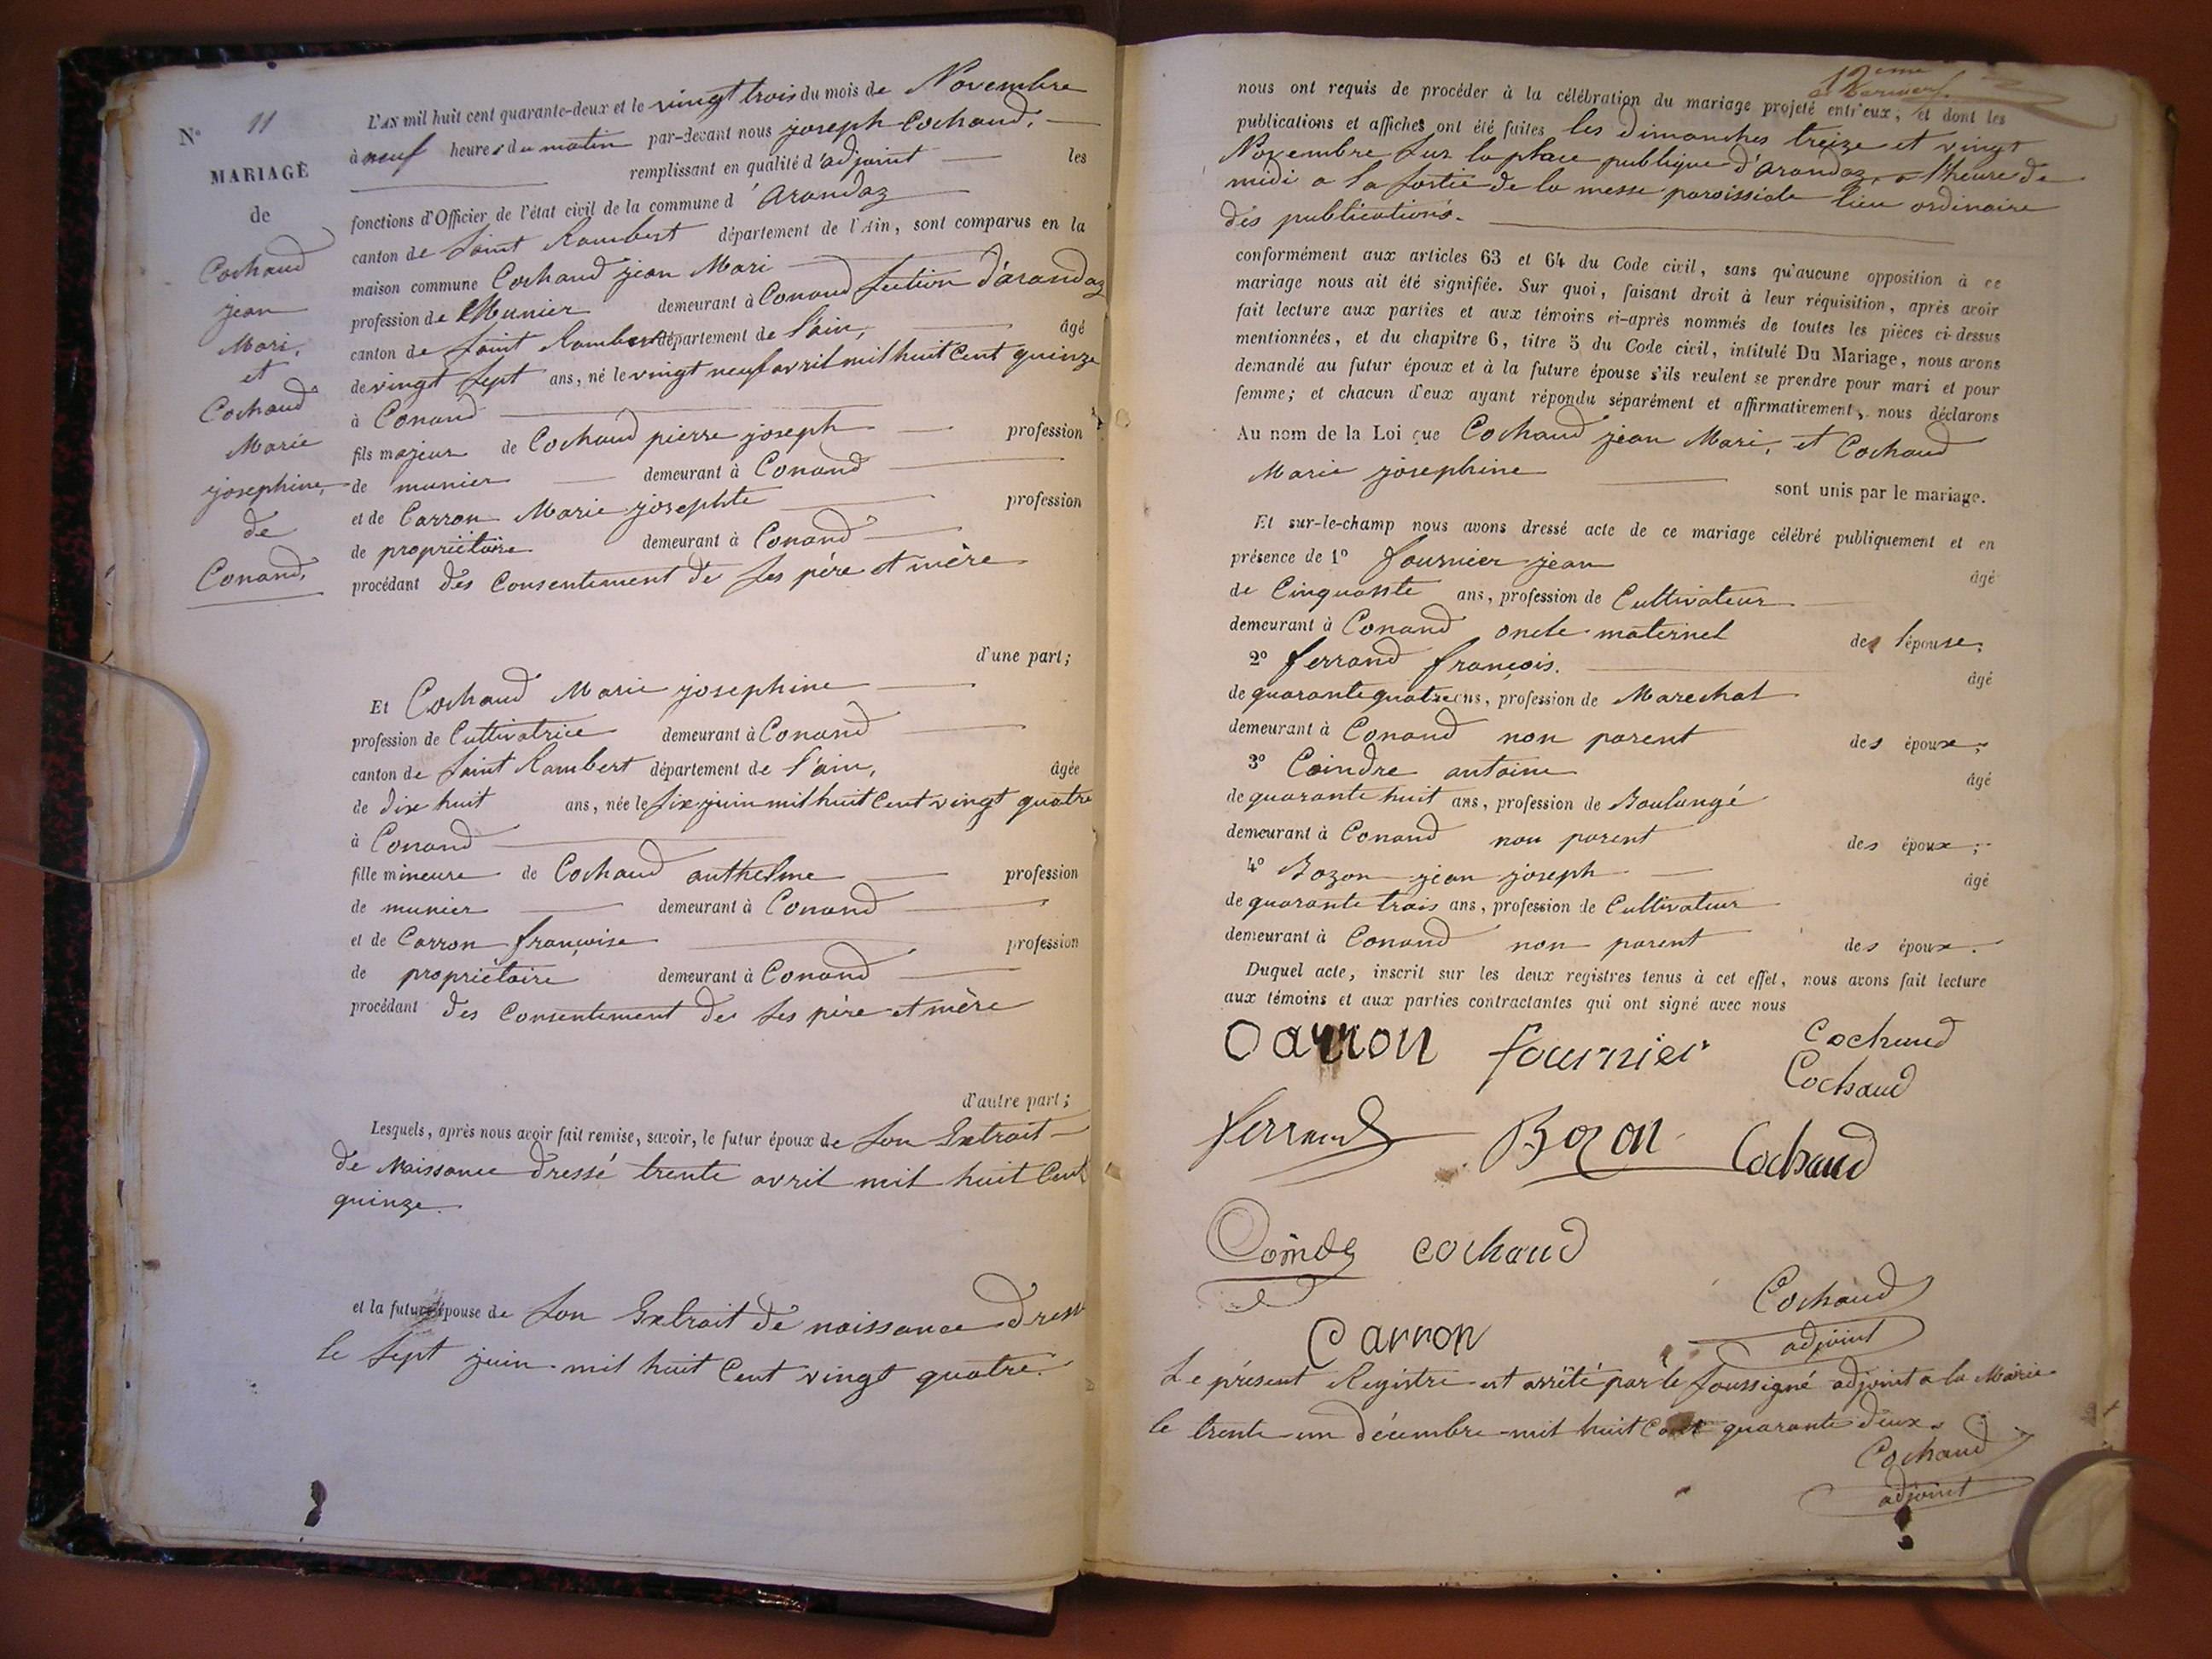 N° 11
MARIAGE
de
Cochaud
jean
Mari,
et
Cochaud
Marie
josephine,
de
Conand,
L'AN mil huit cent quarante-deux et le vingt trois du mois de Novembre
à neuf heures du matin par-devant nous joseph Cochaud,
remplissant en qualité d'adjoint les
fonctions d'Officier de l'état civil de la commune d'Arandaz
canton de Saint Rambert département de l'Ain, sont comparus en la
maison commune Cochaud jean Mari
profession de Munier demeurant à Conand section d'arandaz
canton de Saint Rambert département de l'ain, âgé
de vingt sept ans, né le vingt neuf avril mil huit Cent quinze
à Conand
fils majeur de Cochaud pierre joseph profession
de munier demeurant à Conand
et de Carron Marie josephte profession
de propriétaire demeurant à Conand
procédant des Consentement de ses père et mère
d'une part;
Et Cochaud Marie josephine
profession de Cultivatrice demeurant à Conand
canton de Saint Rambert département de l'ain, âgée
de dix huit ans, née le six juin mil huit Cent vingt quatre
à Conand
fille mineure de Cochaud anthelme profession
de munier demeurant à Conand
et de Carron françoise profession
de propriétaire demeurant à Conand
procédant des Consentement de ses père et mère
d'autre part;
Lesquels, après nous avoir fait remise, savoir, le futur époux de son Extrait
de Naissance dressé trente avril mil huit Cent
quinze.
et la future épouse de son Extrait de naissance dressé
le sept juin mil huit Cent vingt quatre.
12eme
nous ont requis de procéder à la célébration du mariage projeté entr'eux, et dont les
publications et affiches ont été faites les dimanches treize et vingt
Novembre sur la place publique d'arandaz, a l'heure de
midi a la sortie de la messe paroissiale lieu ordinaire
des publications.
conformément aux articles 63 et 64 du Code civil, sans qu'aucune opposition à ce
mariage nous ait été signifiée. Sur quoi, faisant droit à leur réquisition, après avoir
fait lecture aux parties et aux témoins ci-après nommés de toutes les pièces ci-dessus
mentionnées, et du chapitre 6, titre 5 du Code civil, intitulé Du Mariage, nous avons
demandé au futur époux et à la future épouse s'ils veulent se prendre pour mari et pour
femme; et chacun d'eux ayant répondu séparément et affirmativement, nous déclarons
Au nom de la Loi que Cochaud jean Mari, et Cochaud
Marie josephine sont unis par le mariage.
Et sur-le-champ nous avons dressé acte de ce mariage célébré publiquement et en
présence de 1° fournier jean âgé
de Cinquante ans, profession de Cultivateur
demeurant à Conand oncle maternel de l'épouse,
2° ferrand françois. âgé
de quarante quatre ans, profession de Marechal
demeurant à Conand non parent des époux;
3° Coindre antoine âgé
de quarante huit ans, profession de Boulangé
demeurant à Conand non parent des époux;
4° Bozon jean joseph âgé
de quarante trois ans, profession de Cultivateur
demeurant à Conand non parent des époux.
Duquel acte, inscrit sur les deux registres tenus à cet effet, nous avons fait lecture
aux témoins et aux parties contractantes qui ont signé avec nous
Carron fournier Cochaud
Cochaud
ferrand Bozon Cochaud
Coindre cochaud
Cochaud
adjoint
Carron
Le présent Registre est arrêté par le soussigné adjoint a la Mairie
le trente un décembre mil huit Cent quarante deux.
Cochaud
adjoint